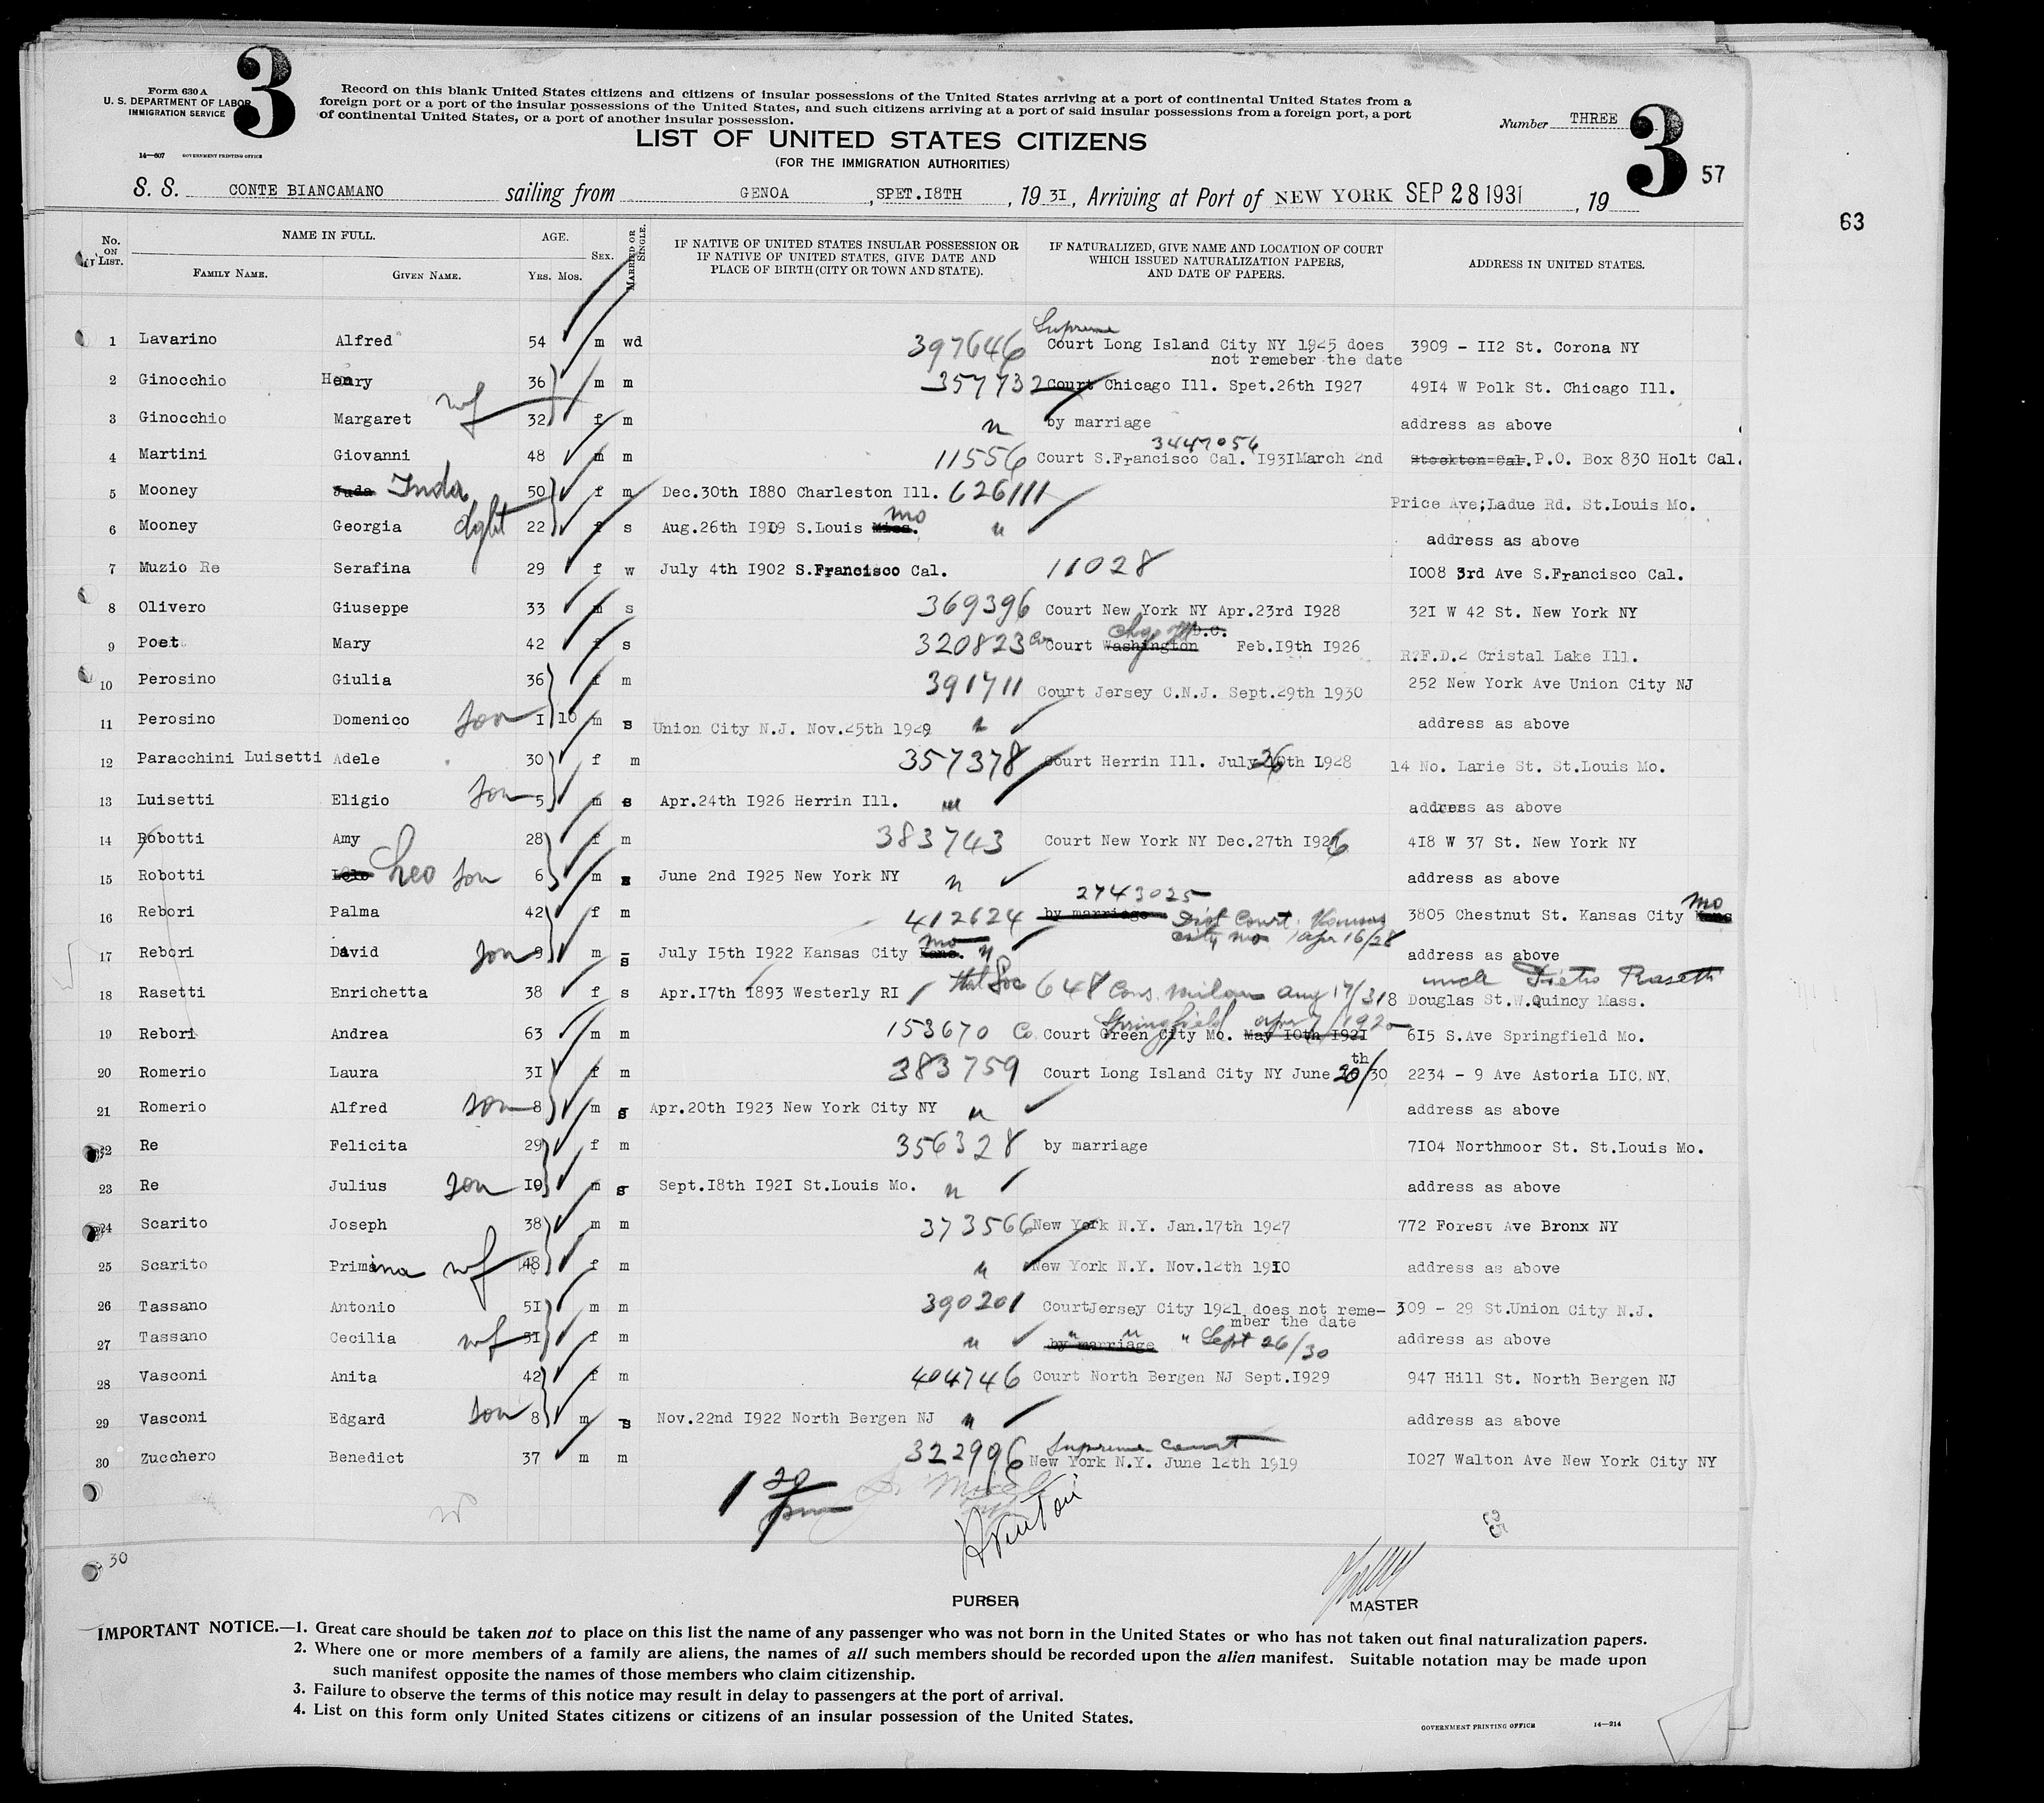 Form 630 A
U. S. DEPARTMENT OF LABOR
IMMIGRATION SERVICE
3
14—607 GOVERNMENT PRINTING OFFICE
Record on this blank United States citizens and citizens of insular possessions of the United States arriving at a port of continental United States from a
foreign port or a port of the insular possessions of the United States, and such citizens arriving at a port of said insular possessions from a foreign port, a port
of continental United States, or a port of another insular possession.
LIST OF UNITED STATES CITIZENS
(FOR THE IMMIGRATION AUTHORITIES)
Number THREE
3
57
63
S. S. CONTE BIANCAMANO sailing from GENOA, SPET.I8TH, 19 3I, Arriving at Port of NEW YORK SEP 28 1931, 19
No. ON LIST. NAME IN FULL. FAMILY NAME. GIVEN NAME. AGE. YRS. MOS. SEX. MARRIED OR SINGLE. IF NATIVE OF UNITED STATES INSULAR POSSESSION OR IF NATIVE OF UNITED STATES, GIVE DATE AND PLACE OF BIRTH (CITY OR TOWN AND STATE). IF NATURALIZED, GIVE NAME AND LOCATION OF COURT WHICH ISSUED NATURALIZATION PAPERS, AND DATE OF PAPERS. ADDRESS IN UNITED STATES.
Supreme
1 Lavarino Alfred 54 m wd 397646 Court Long Island City NY 1925 does 3909 - II2 St. Corona NY
not remeber the date
2 Ginocchio Henry 36 m m 357732 Court Chicago Ill. Spet.26th I927 49I4 W Polk St. Chicago Ill.
3 Ginocchio Margaret wf 32 f m " by marriage address as above
3447056
4 Martini Giovanni 48 m m 11556 Court S.Francisco Cal. I93IMarch 2nd Stockton Cal. P.O. Box 830 Holt Cal.
5 Mooney Juda Inda 50 f m Dec.30th I880 Charleston Ill. 626111 Price Ave;Ladue Rd. St.Louis Mo.
6 Mooney Georgia dght 22 f s Aug.26th I909 S.Louis Miss. Mo " address as above
7 Muzio Re Serafina 29 f w July 4th I902 S.Francisco Cal. 11028 I008 3rd Ave S.Francisco Cal.
8 Olivero Giuseppe 33 m s 369396 Court New York NY Apr.23rd I928 32I W 42 St. New York NY
9 Poet Mary 42 f s 320823 Court Washington D.C. Feb.I9th I926 R.F.D.2 Cristal Lake Ill.
10 Perosino Giulia 36 f m 391711 Court Jersey C.N.J. Sept.29th 1930 252 New York Ave Union City NJ
11 Perosino Domenico son I 10 m s Union City N.J. Nov.25th 1929 " address as above
12 Paracchini Luisetti Adele 30 f m 357378 Court Herrin Ill. July 26th I928 14 No. Larie St. St.Louis Mo.
13 Luisetti Eligio son 5 m s Apr.24th I926 Herrin Ill. " address as above
14 Robotti Amy 28 f m 383743 Court New York NY Dec.27th I926 4I8 W 37 St. New York NY
15 Robotti Leo son 6 m s June 2nd I925 New York NY " address as above
2743025
16 Rebori Palma 42 f m 412624 by marriage Dist Court, Kansas City Mo Apr 16/28 3805 Chestnut St. Kansas City Kans Mo
17 Rebori David son 9 m s July I5th I922 Kansas City Kans. Mo " address as above
uncle Pietro Rasetti
18 Rasetti Enrichetta 38 f s Apr.I7th I893 Westerly RI 648 Cons. Milan Aug 17/31 8 Douglas St.W.Quincy Mass.
Springfield Apr 7/1920
19 Rebori Andrea 63 m m 153670 Co. Court Green City Mo. May I0th I92I 6I5 S.Ave Springfield Mo.
20 Romerio Laura 3I f m 383759 Court Long Island City NY June 20th/30 2234 - 9 Ave Astoria LIC.NY.
21 Romerio Alfred son 8 m s Apr.20th I923 New York City NY " address as above
22 Re Felicita 29 f m 356328 by marriage 7I04 Northmoor St. St.Louis Mo.
23 Re Julius son I0 m s Sept.I8th I92I St.Louis Mo. " address as above
24 Scarito Joseph 38 m m 373566 New York N.Y. Jan.17th 1927 772 Forest Ave Bronx NY
25 Scarito Primina wf 48 f m " New York N.Y. Nov.12th 1910 address as above
26 Tassano Antonio 5I m m 390201 CourtJersey City 1921 does not reme- 309 - 29 St.Union City N.J.
mber the date
27 Tassano Cecilia wf 3I f m " by marriage " " " Sept 26/30 address as above
28 Vasconi Anita 42 f m 404746 Court North Bergen NJ Sept.I929 947 Hill St. North Bergen NJ
29 Vasconi Edgard son 8 m s Nov.22nd I922 North Bergen NJ " address as above
Supreme Court
30 Zucchero Benedict 37 m m 322996 New York N.Y. June 12th 1919 I027 Walton Ave New York City NY
30
PURSER
MASTER
IMPORTANT NOTICE.—1. Great care should be taken not to place on this list the name of any passenger who was not born in the United States or who has not taken out final naturalization papers.
2. Where one or more members of a family are aliens, the names of all such members should be recorded upon the alien manifest. Suitable notation may be made upon
such manifest opposite the names of those members who claim citizenship.
3. Failure to observe the terms of this notice may result in delay to passengers at the port of arrival.
4. List on this form only United States citizens or citizens of an insular possession of the United States.
GOVERNMENT PRINTING OFFICE 14—214